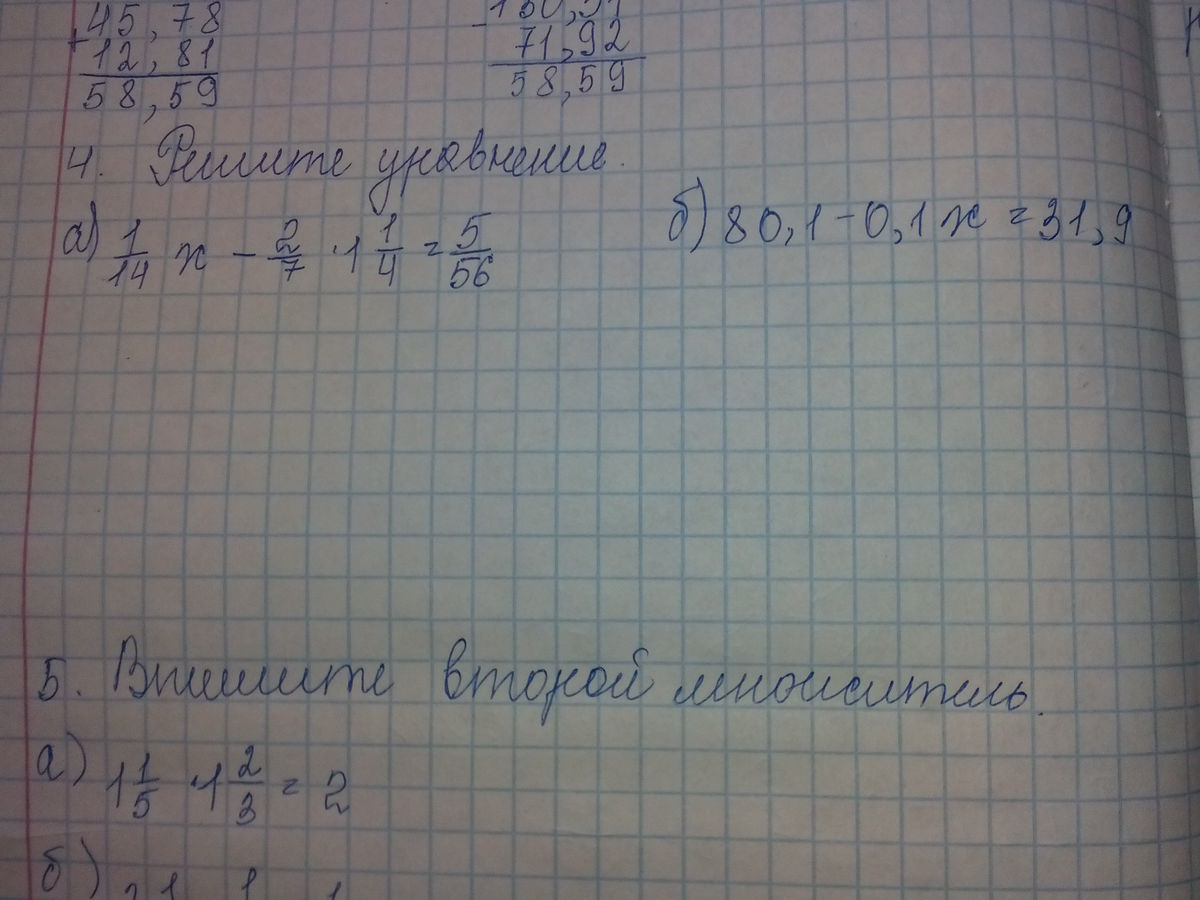 45,78
+ 12,81
58,59
71,92
58,59
4. Решите уравнение.
а) 1/14 x - 2/7 · 1 1/4 = 5/56
б) 80,1 - 0,1x = 31,9
5. Впишите второй множитель.
а) 1 1/5 · 1 2/3 = 2
б)